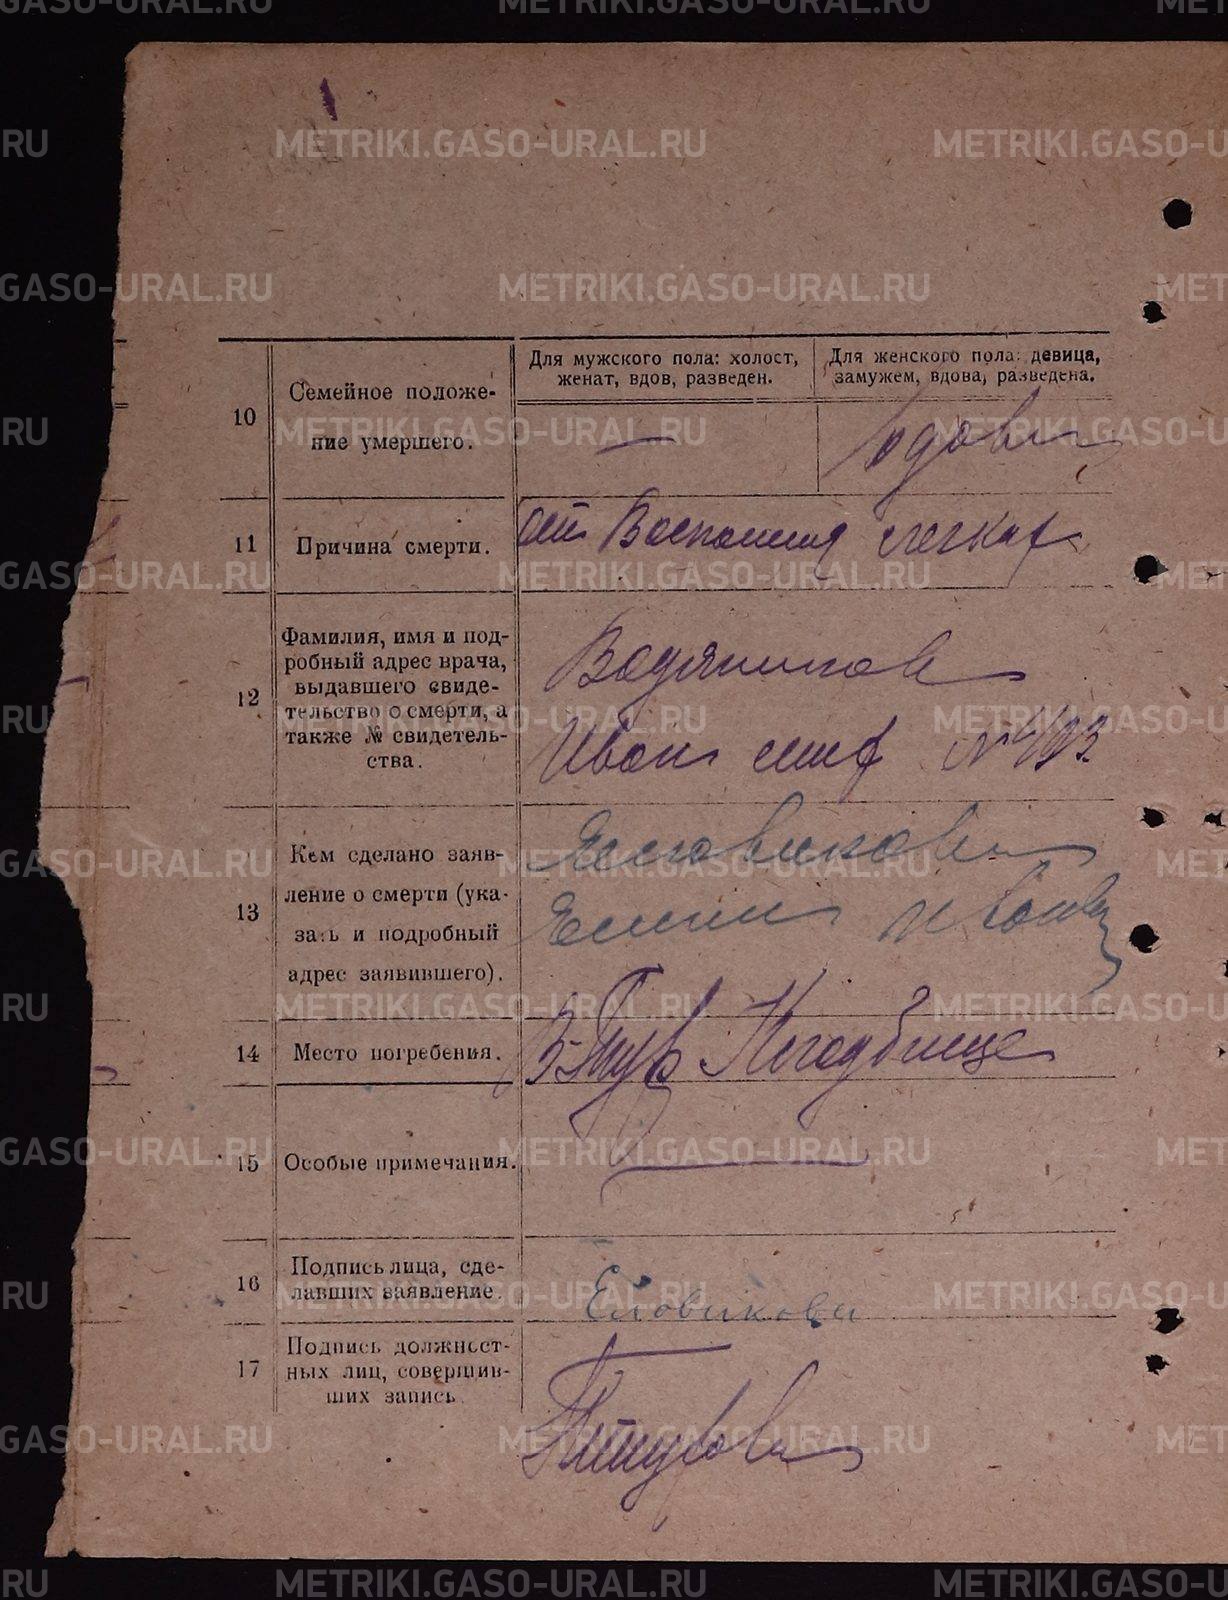 METRIKI.GASO-URAL.RU
Для мужского пола: холост,
женат, вдов, разведен.
Для женского пола: девица,
замужем, вдова, разведена.
10
Семейное положе-
ние умершего.
—
вдова
11
Причина смерти.
от Воспаления легких
12
Фамилия, имя и под-
робный адрес врача,
выдавшего свиде-
тельство о смерти, а
также № свидетель-
ства.
Водяников
Иван
13
Кем сделано заяв-
ление о смерти (ука-
зать и подробный
адрес заявившего).
Еловикова
14
Место погребения.
Кладбище
15
Особые примечания.
—
16
Подпись лица, сде-
лавших заявление.
Еловикова
17
Подпись должност-
ных лиц, совершив-
ших запись.